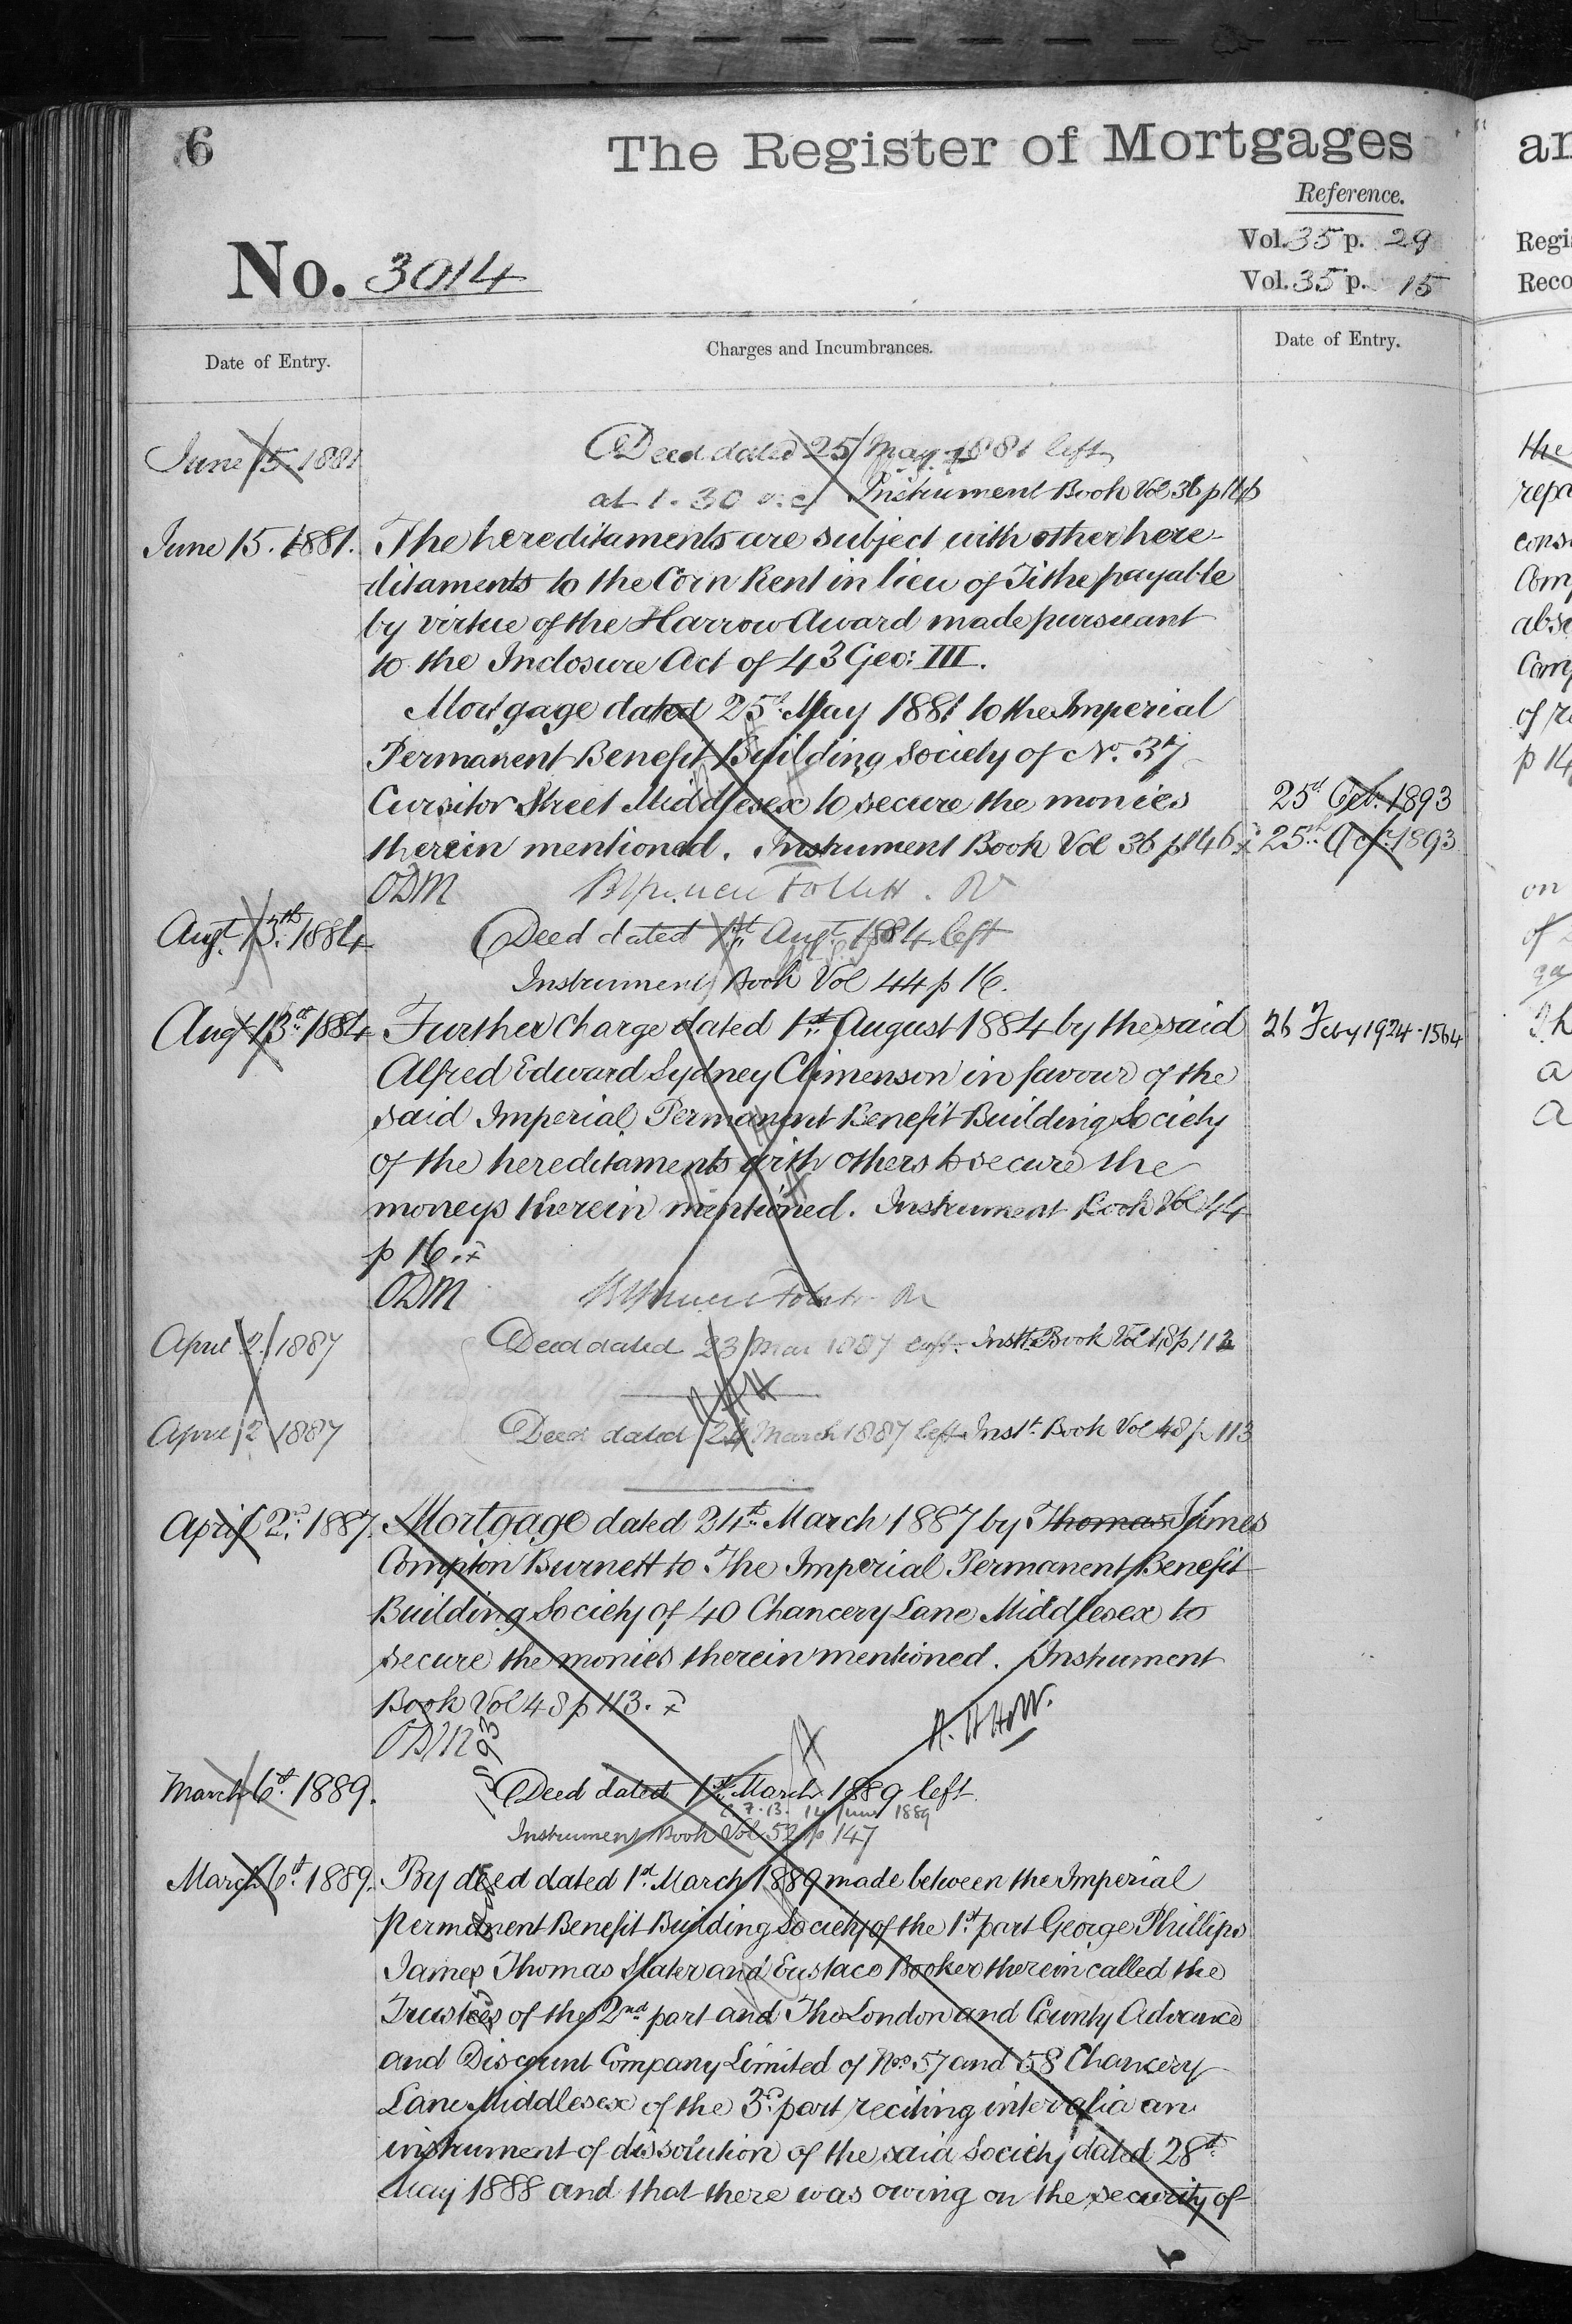 6
The Register of Mortgages
Reference.
Vol. 35 p. 29
Vol. 35 p. 15
No. 3014
Date of Entry.
Charges and Incumbrances.
Date of Entry.
June 15. 1881
Deed dated 25 May 1881 left
at 1.30 Instrument Book Vol 36 p 146
June 15. 1881. The hereditaments are subject with other here-
ditaments to the Corn Rent in lieu of Tithe payable
by virtue of the Harrow Award made pursuant
to the Inclosure Act of 43 Geo: III.
Mortgage dated 25th May 1881 to the Imperial
Permanent Benefit Building Society of No. 37
Cursitor Street Middlesex to secure the monies
25th Oct. 1893
therein mentioned. Instrument Book Vol 36 p 146
25th Oct. 1893
ODM
Augt. 13th 1884
Deed dated 1st Augt. 1884 left
Instrument Book Vol 44 p 16.
Augt 13th 1884 Further Charge dated 1st August 1884 by the said
26 Feby 1924 - 1564
Alfred Edward Sydney Climenson in favour of the
said Imperial Permanent Benefit Building Society
of the hereditaments with others to secure the
moneys therein mentioned. Instrument Book Vol 44
p 16.
ODM
April 2 1887
Deed dated 23 Mar 1887 left. Instt. Book Vol 48 p 112
April 2 1887
Deed dated 24 March 1887 left Inst. Book Vol 48 p 113
April 2nd. 1887. Mortgage dated 24th March 1887 by Thomas James
Compton Burnett to The Imperial Permanent Benefit
Building Society of 40 Chancery Lane Middlesex to
secure the monies therein mentioned. Instrument
Book Vol 48 p 113.
ODM
March 6th. 1889.
Deed dated 1st March 1889 left
Instrument Book Vol 52 p 147
March 6th. 1889. By deed dated 1st. March 1889 made between the Imperial
Permanent Benefit Building Society of the 1st. part George Phillips
James Thomas Slater and Eustace Booker therein called the
Trustees of the 2nd. part and The London and County Advance
and Discount Company Limited of Nos 57 and 58 Chancery
Lane Middlesex of the 3rd. part reciting inter alia an
instrument of dissolution of the said Society dated 28th
May 1888 and that there was owing on the security of